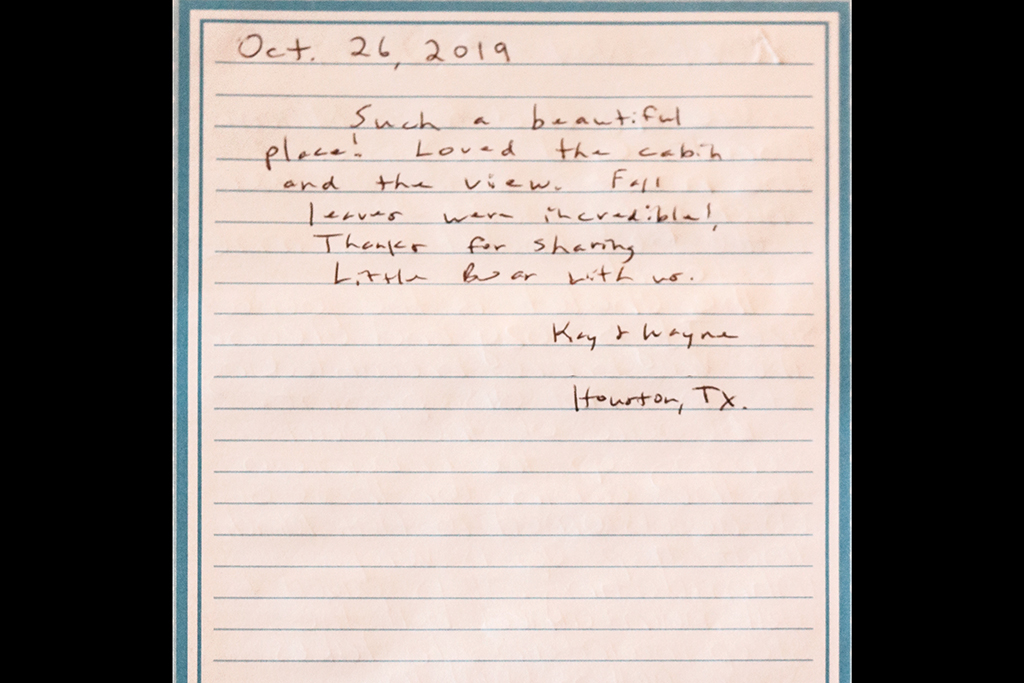 Oct. 26, 2019
Such a beautiful
place! Loved the cabin
and the view. Fall
leaves were incredible!
Thanks for sharing
Little Bear with us.
Kay & Wayne
Houston, TX.